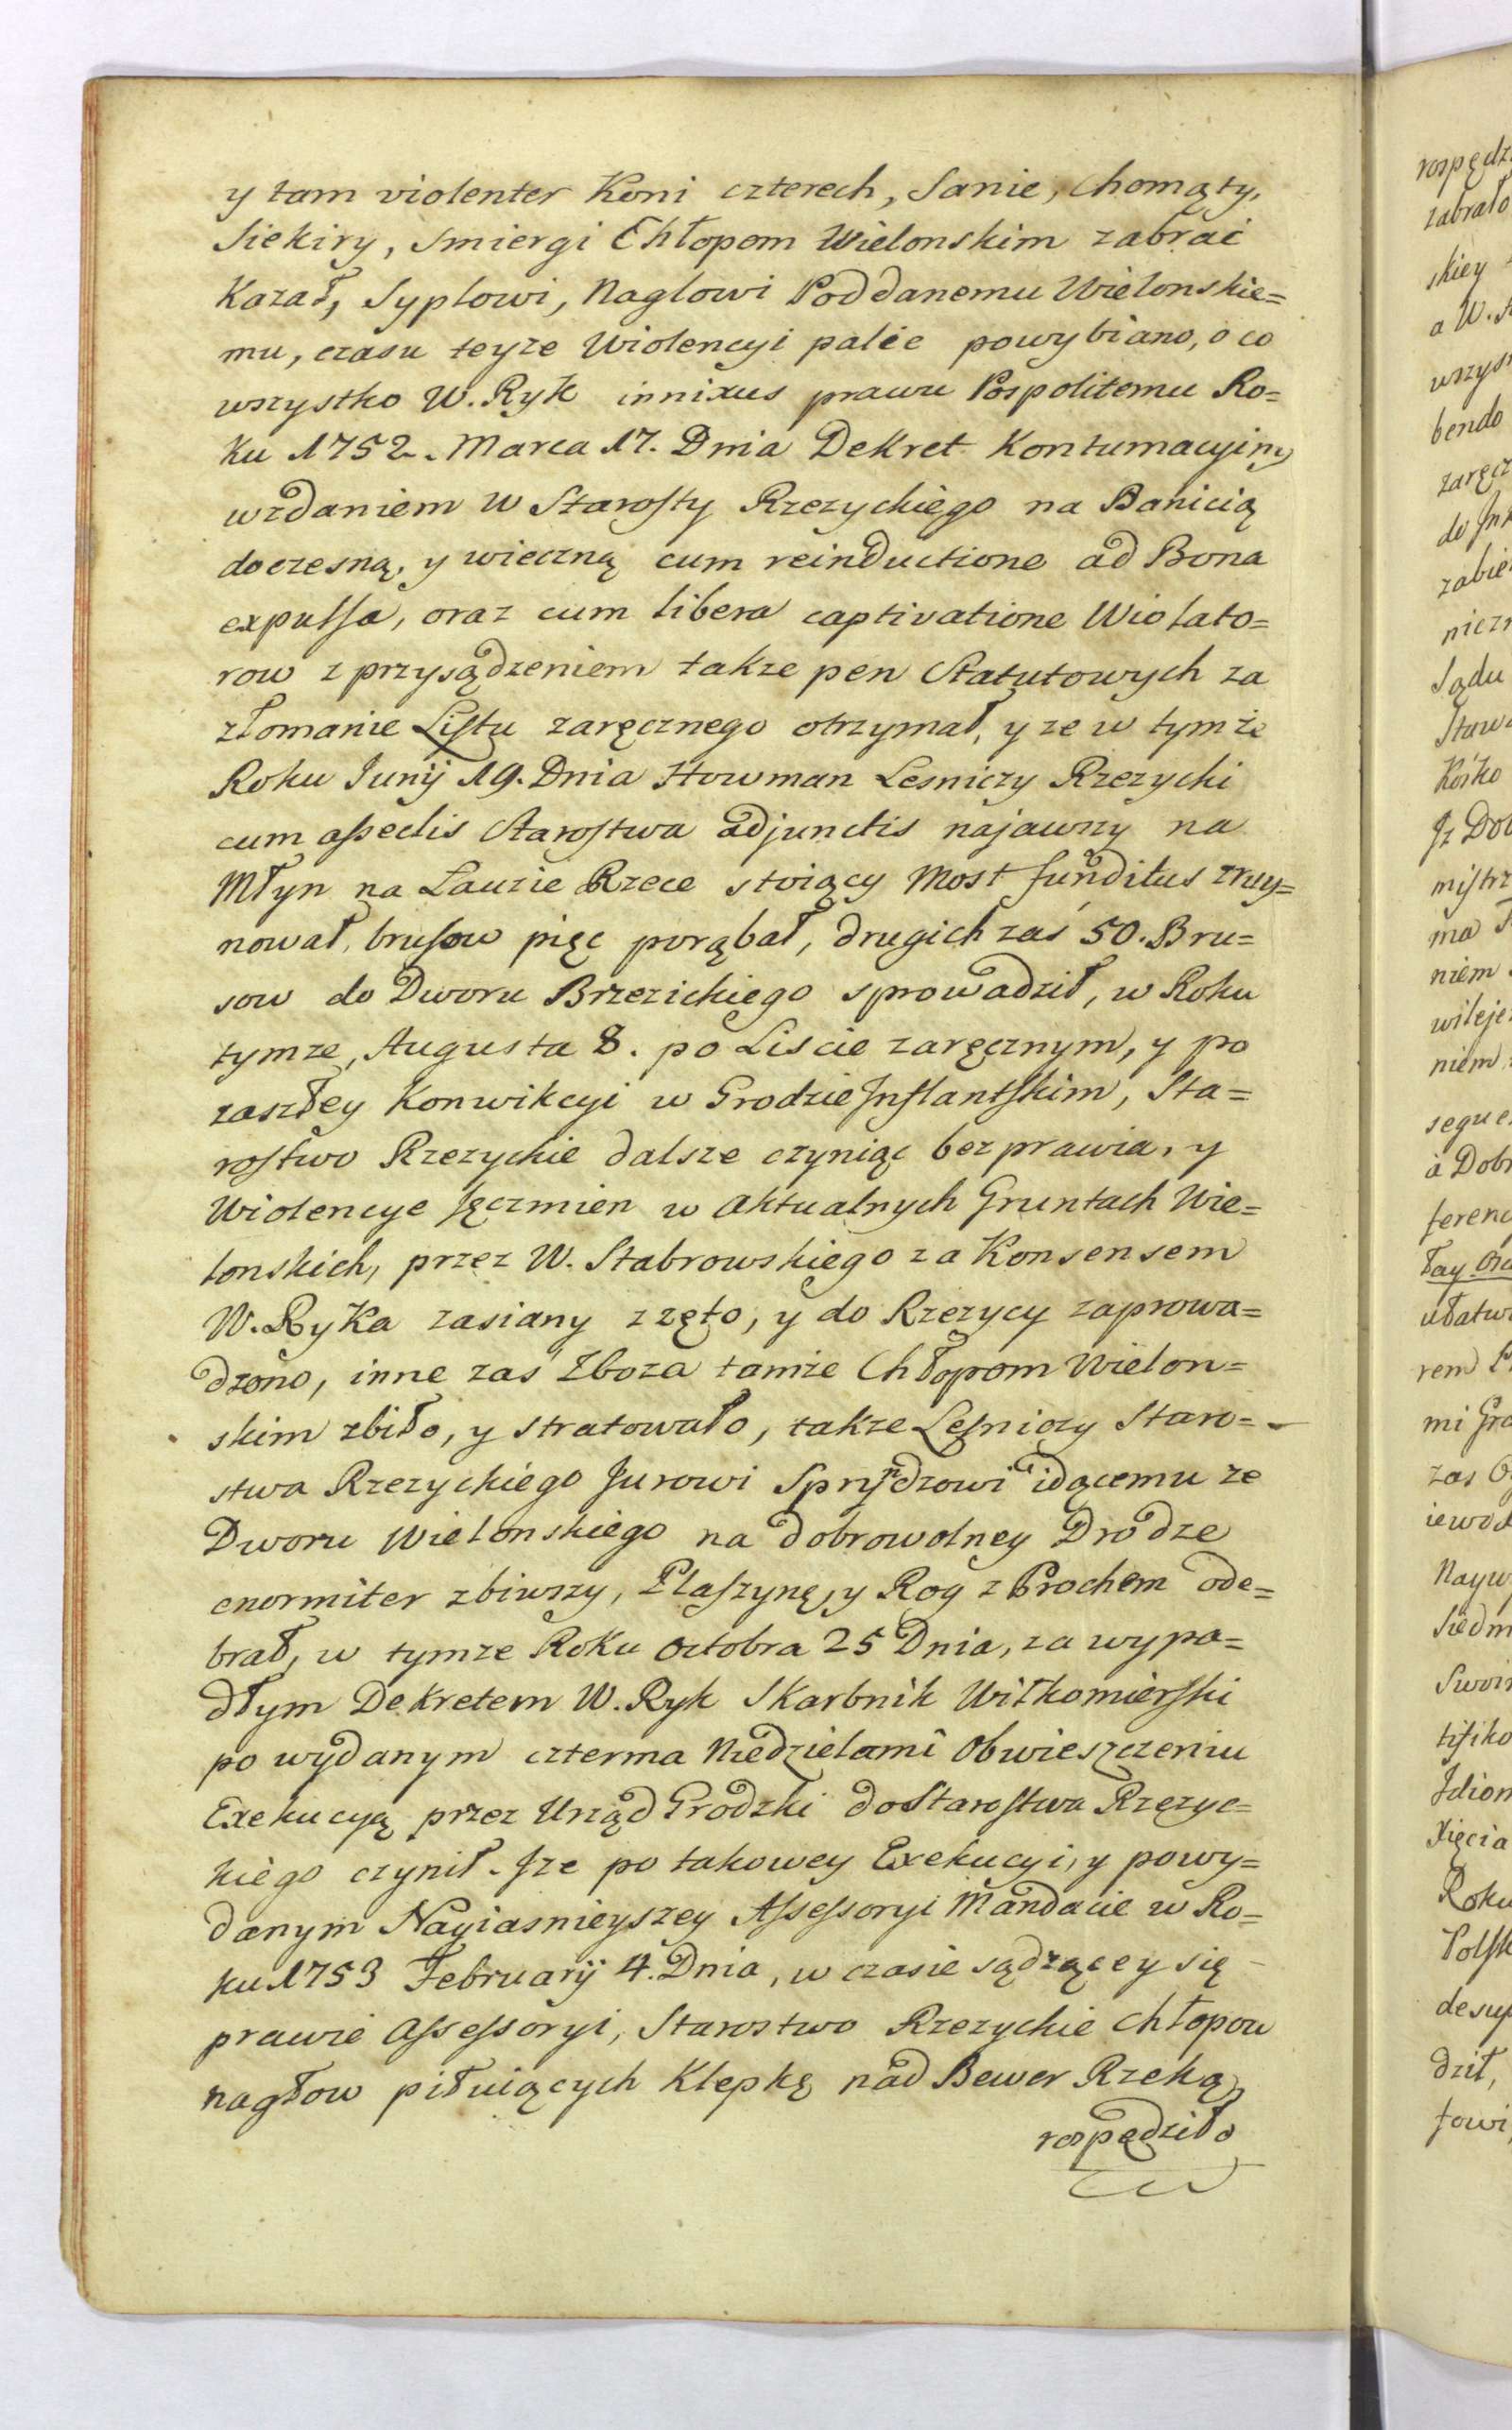 y tam violenter Koni czterech, Sanie, Chomąty,
Siekiry, Smiergi Chłopom Wielonskim zabrać
Kazał, Syplowi, Naglowi Poddanemu Wielonskie=
mu, czasu teyze Wiolencyi palce powybiano, o co
wszystko W. Ryk innixus prawu Pospolitemu Ro=
ku 1752. Marca 17. Dnia Dekret Kontumacyiny
wzdaniem W Starosty Rzezyckiego na Banicią
doczesną, y wieczną cum reinductione ad Bona
expulsa, oraz cum libera captivatione Wiolato=
row z przysądzeniem takze pen Statutowych za
złomanie Listu zaręcznego otrzymał, y ze w tymże
Roku Junij 19. Dnia Howman Lesniczy Rzezycki
cum asseclis Starostwa adjunctis najawszy na
Młyn na Lauzie Rzece stoiący Most funditus zruy=
nował, brusow pięc porąbał, drugich zaś 50. Bru=
sow do Dworu Brzezickiego sprowadził, w Roku
tymze, Augusta 8. po Liscie zaręcznym, y po
zaszłey Konwikcyi w Grodzie Inflantskim, Sta=
rostwo Rzezyckie dalsze czyniąc bezprawia, y
Wiolencye Jęczmien w aktualnych Gruntach Wie=
lonskich, przez W. Stabrowskiego za Konsensem
W. Ryka zasiany zzęto, y do Rzezycy zaprowa=
dzono, inne zaś Zboza tamże Chłopom Wielon=
skim zbiło, y stratowało, takze Lesniczy Staro=
stwa Rzezyckiego Jurowi idącemu ze
Dworu Wielonskiego na dobrowolney Drodze
enormiter zbiwszy, Płaszynę, y Rog z Prochem ode=
brał, w tymze Roku Octobra 25 Dnia, za wypa=
dłym Dekretem W. Ryk Skarbnik Wiłkomierski
po wydanym czterma Niedzielami Obwieszczeniu
Exekucyą przez Urząd Grodzki do Starostwa Rzezyc=
kiego czynił. Jze po takowey Exekucyi, y powy=
danym Nayiasnieyszey Assessoryi Mandacie w Ro=
ku 1753 Februarij 4. Dnia, w czasie sądzącey się
prawie Assessoryi, Starostwo Rzezyckie Chłopow
nagłow piłuiących Klepkę nad Bewer Rzeką,
rospędziło